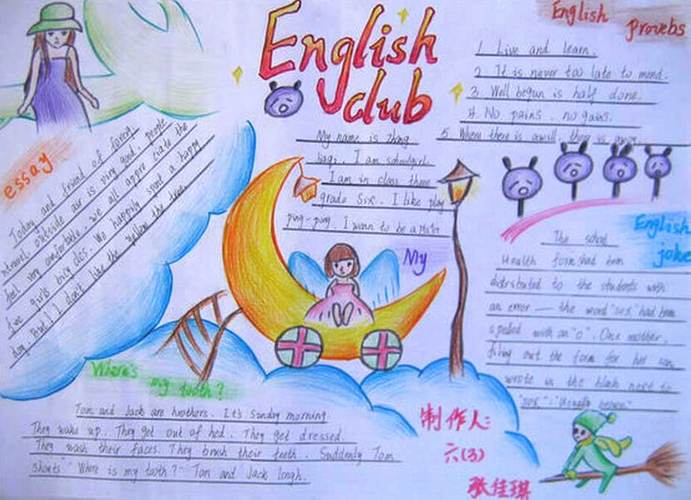 English
club
English proverbs
1. Live and learn.
2. It is never too late to mend.
3. Well begun is half done.
4. No pains, no gains.
5. Where there is a will, there is
essay
Today and friend of forest
travel, outside air is very good, people
feel very comfortable, we all appreciate the
two girls bick des. We happily spent a happy
day. But I I don't like the
My name is Zhang
I am schoolgirl.
I am in class three
grade Six. I like play
ping-pong. I want to be a
My
English
joke
The school
Health form had been
distributed to the students with
an error — the word "sex" had been
spelled with an "o". One mother,
filling out the form for her son,
wrote in the blank next to
Where's my tooth?
Tom and Jack are brothers. It's Sunday morning.
They wake up. They get out of bed. They get dressed.
They wash their faces. They brush their teeth. Suddenly Tom
shouts "Where is my tooth?" Tom and Jack laugh.
制作人:
六(3)
张佳琪